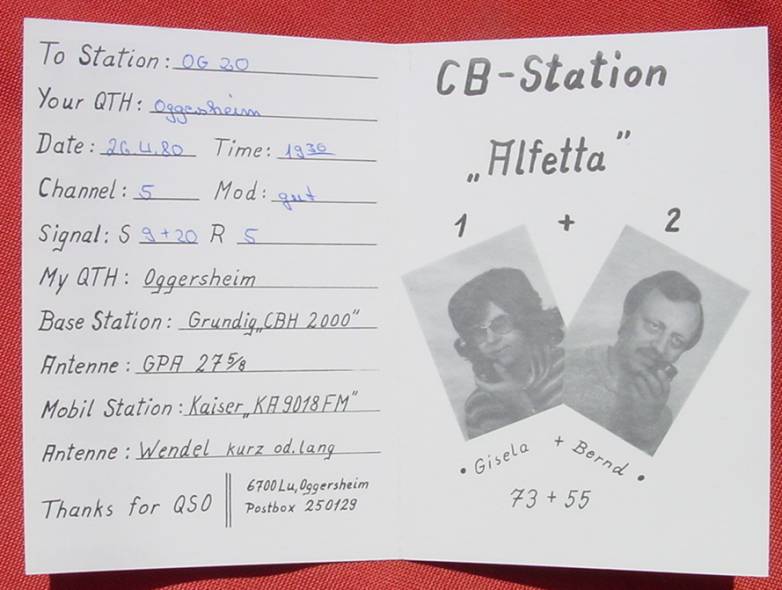 To Station: OG 20
Your QTH: Oggersheim
Date: 26.4.80 Time: 1930
Channel: 5 Mod: gut
Signal: S 9+20 R 5
My QTH: Oggersheim
Base Station: Grundig „CBH 2000“
Antenne: GPA 27 5/8
Mobil Station: Kaiser „KA 9018 FM“
Antenne: Wendel kurz od. lang
Thanks for QSO
6700 Lu, Oggersheim
Postbox 250129
CB-Station
„Alfetta”
1 + 2
• Gisela + Bernd •
73 + 55